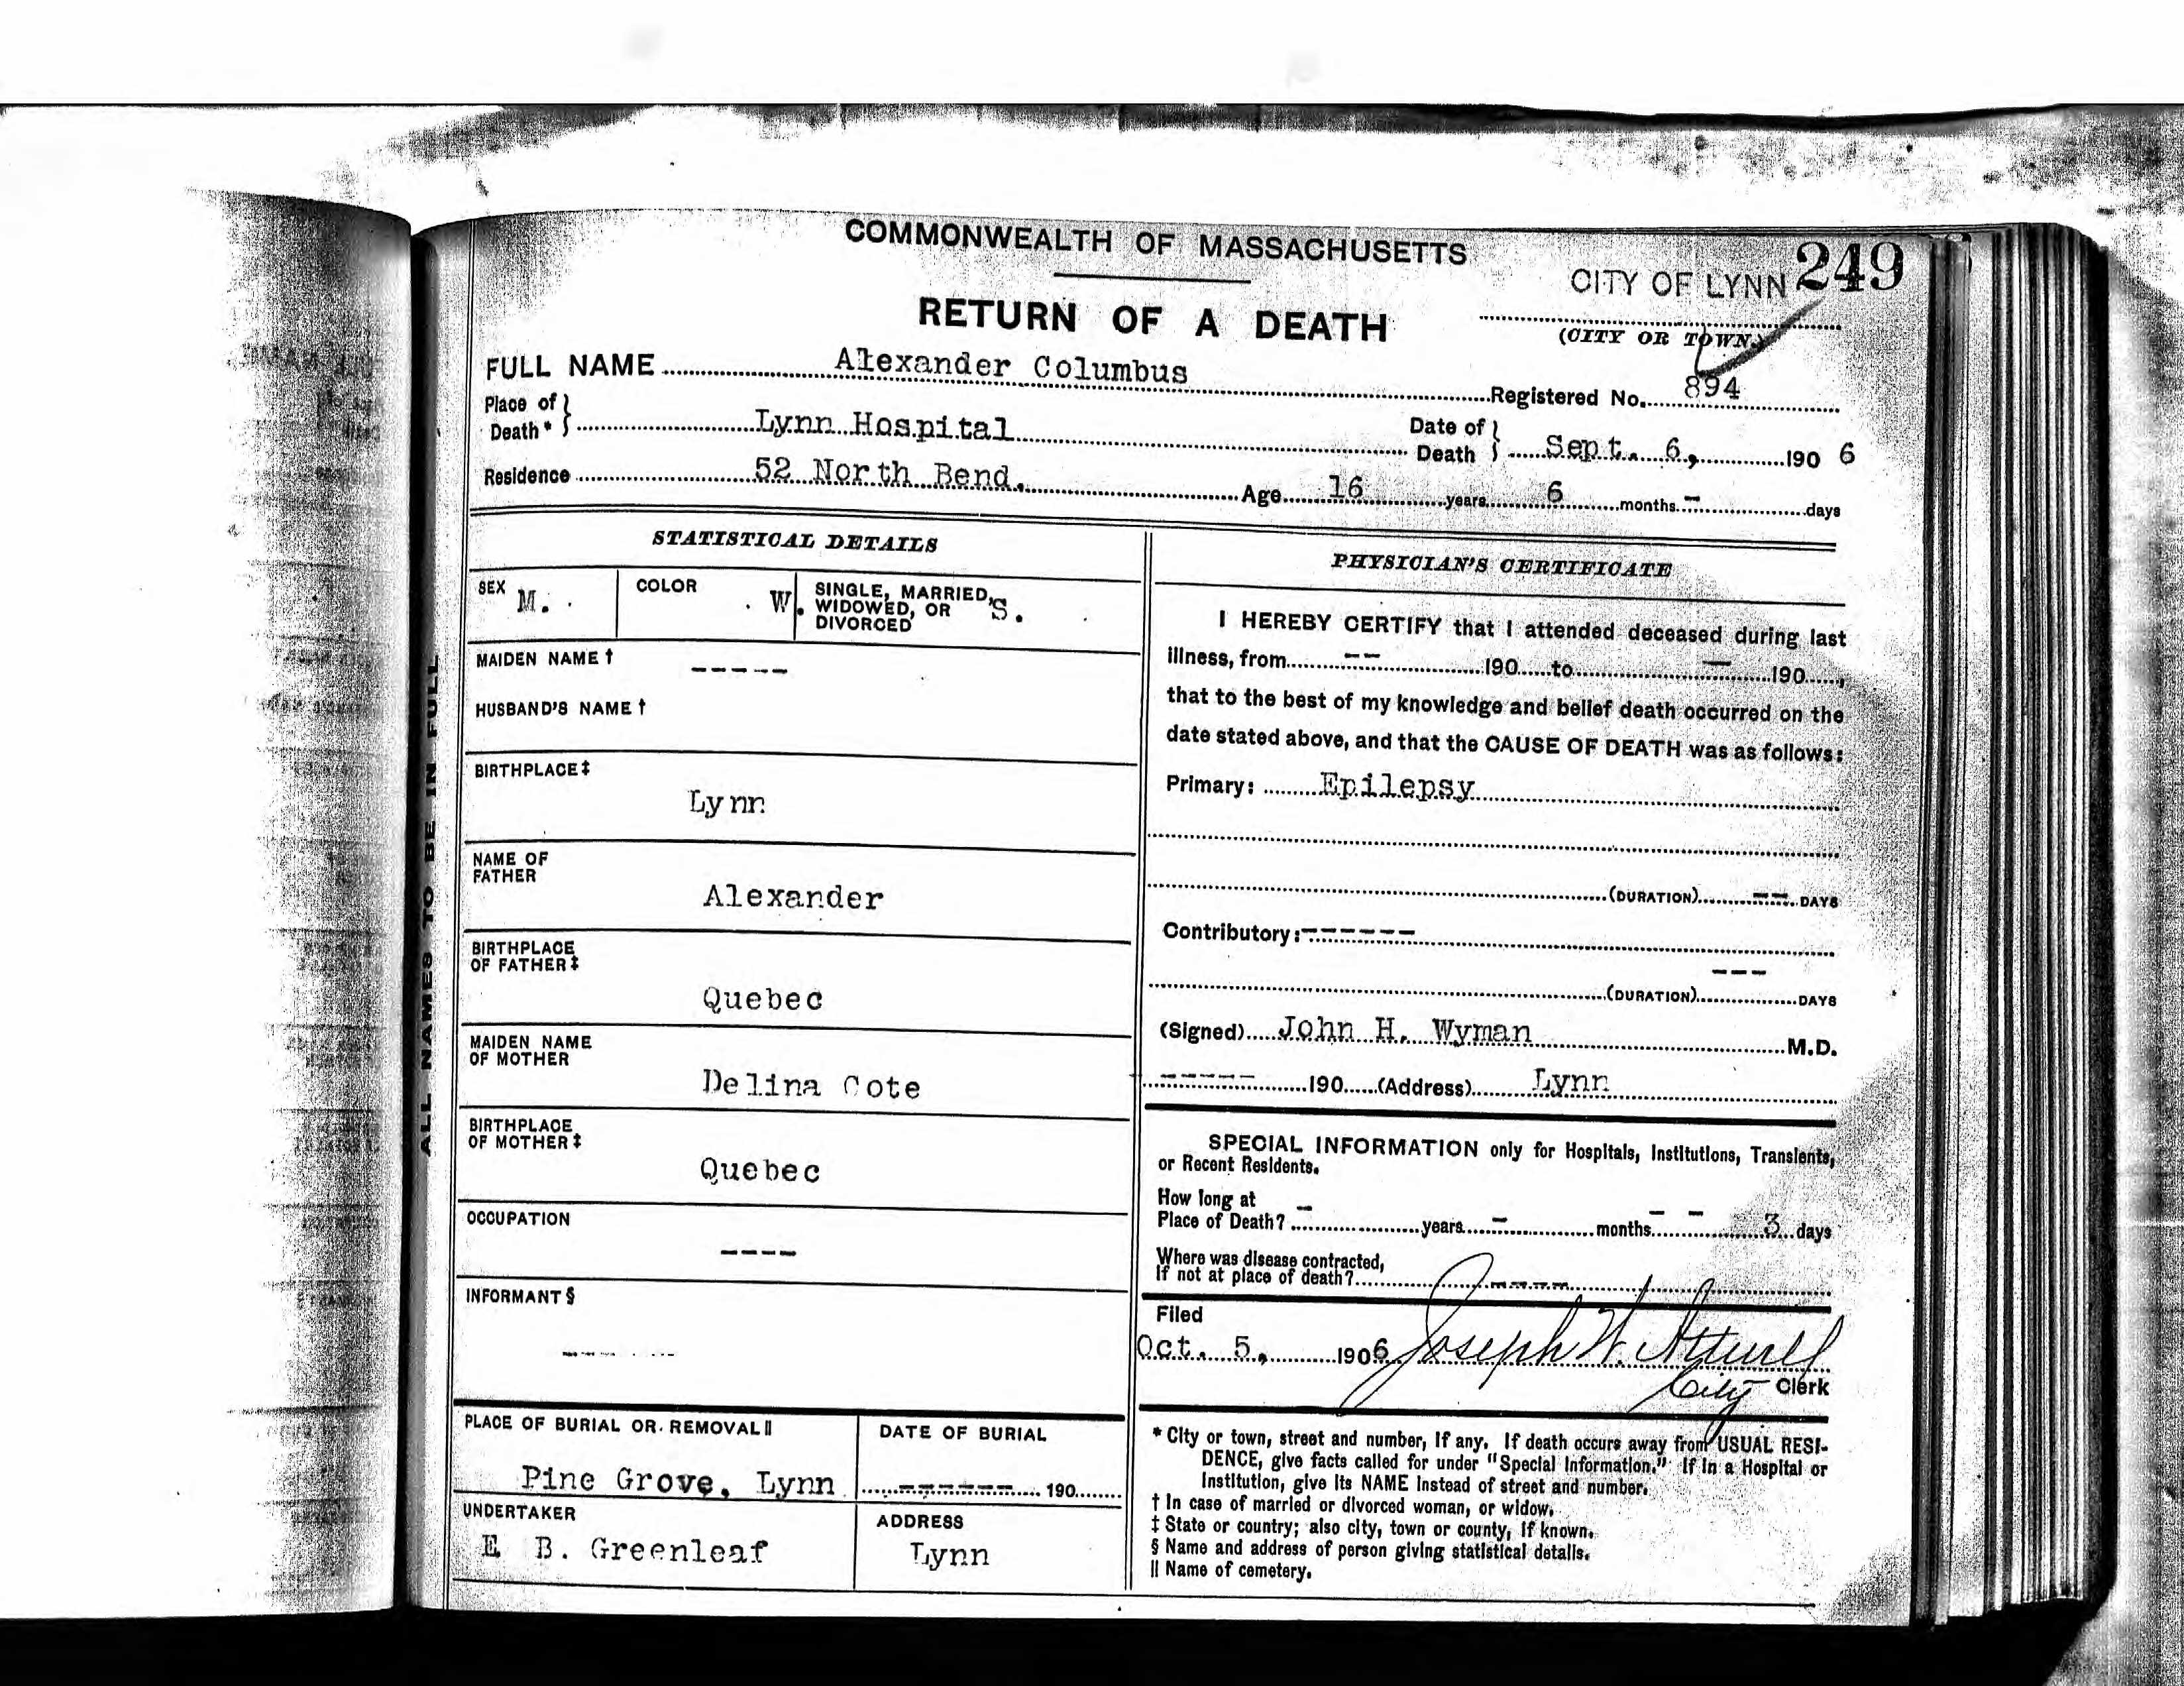 COMMONWEALTH OF MASSACHUSETTS
CITY OF LYNN 249
RETURN OF A DEATH
(CITY OR TOWN.)
FULL NAME Alexander Columbus Registered No. 894
Place of Death* } Lynn Hospital Date of Death } Sept. 6, 190 6
Residence 52 North Bend. Age 16 years 6 months - days
ALL NAMES TO BE IN FULL
STATISTICAL DETAILS
SEX M. COLOR W. SINGLE, MARRIED, WIDOWED, OR DIVORCED S.
MAIDEN NAME † -----
HUSBAND'S NAME †
BIRTHPLACE ‡
Lynn
NAME OF FATHER
Alexander
BIRTHPLACE OF FATHER ‡
Quebec
MAIDEN NAME OF MOTHER
Delina Cote
BIRTHPLACE OF MOTHER ‡
Quebec
OCCUPATION
----
INFORMANT §
---- ---
PLACE OF BURIAL OR REMOVAL ||
Pine Grove, Lynn
DATE OF BURIAL
------- 190
UNDERTAKER
E B. Greenleaf
ADDRESS
Lynn
PHYSICIAN'S CERTIFICATE
I HEREBY CERTIFY that I attended deceased during last
illness, from -- 190 to - 190 ,
that to the best of my knowledge and belief death occurred on the
date stated above, and that the CAUSE OF DEATH was as follows:
Primary: Epilepsy
(DURATION) -- DAYS
Contributory: -------
---
(DURATION) DAYS
(Signed) John H. Wyman M.D.
----- 190 (Address) Lynn
SPECIAL INFORMATION only for Hospitals, Institutions, Transients,
or Recent Residents.
How long at
Place of Death? - years - months - - 3 days
Where was disease contracted,
If not at place of death? ----
Filed
Oct. 5, 1906 Joseph W. Attwill
City Clerk
* City or town, street and number, if any. If death occurs away from USUAL RESI-
DENCE, give facts called for under "Special Information." If in a Hospital or
Institution, give its NAME instead of street and number.
† In case of married or divorced woman, or widow.
‡ State or country; also city, town or county, if known.
§ Name and address of person giving statistical details.
|| Name of cemetery.